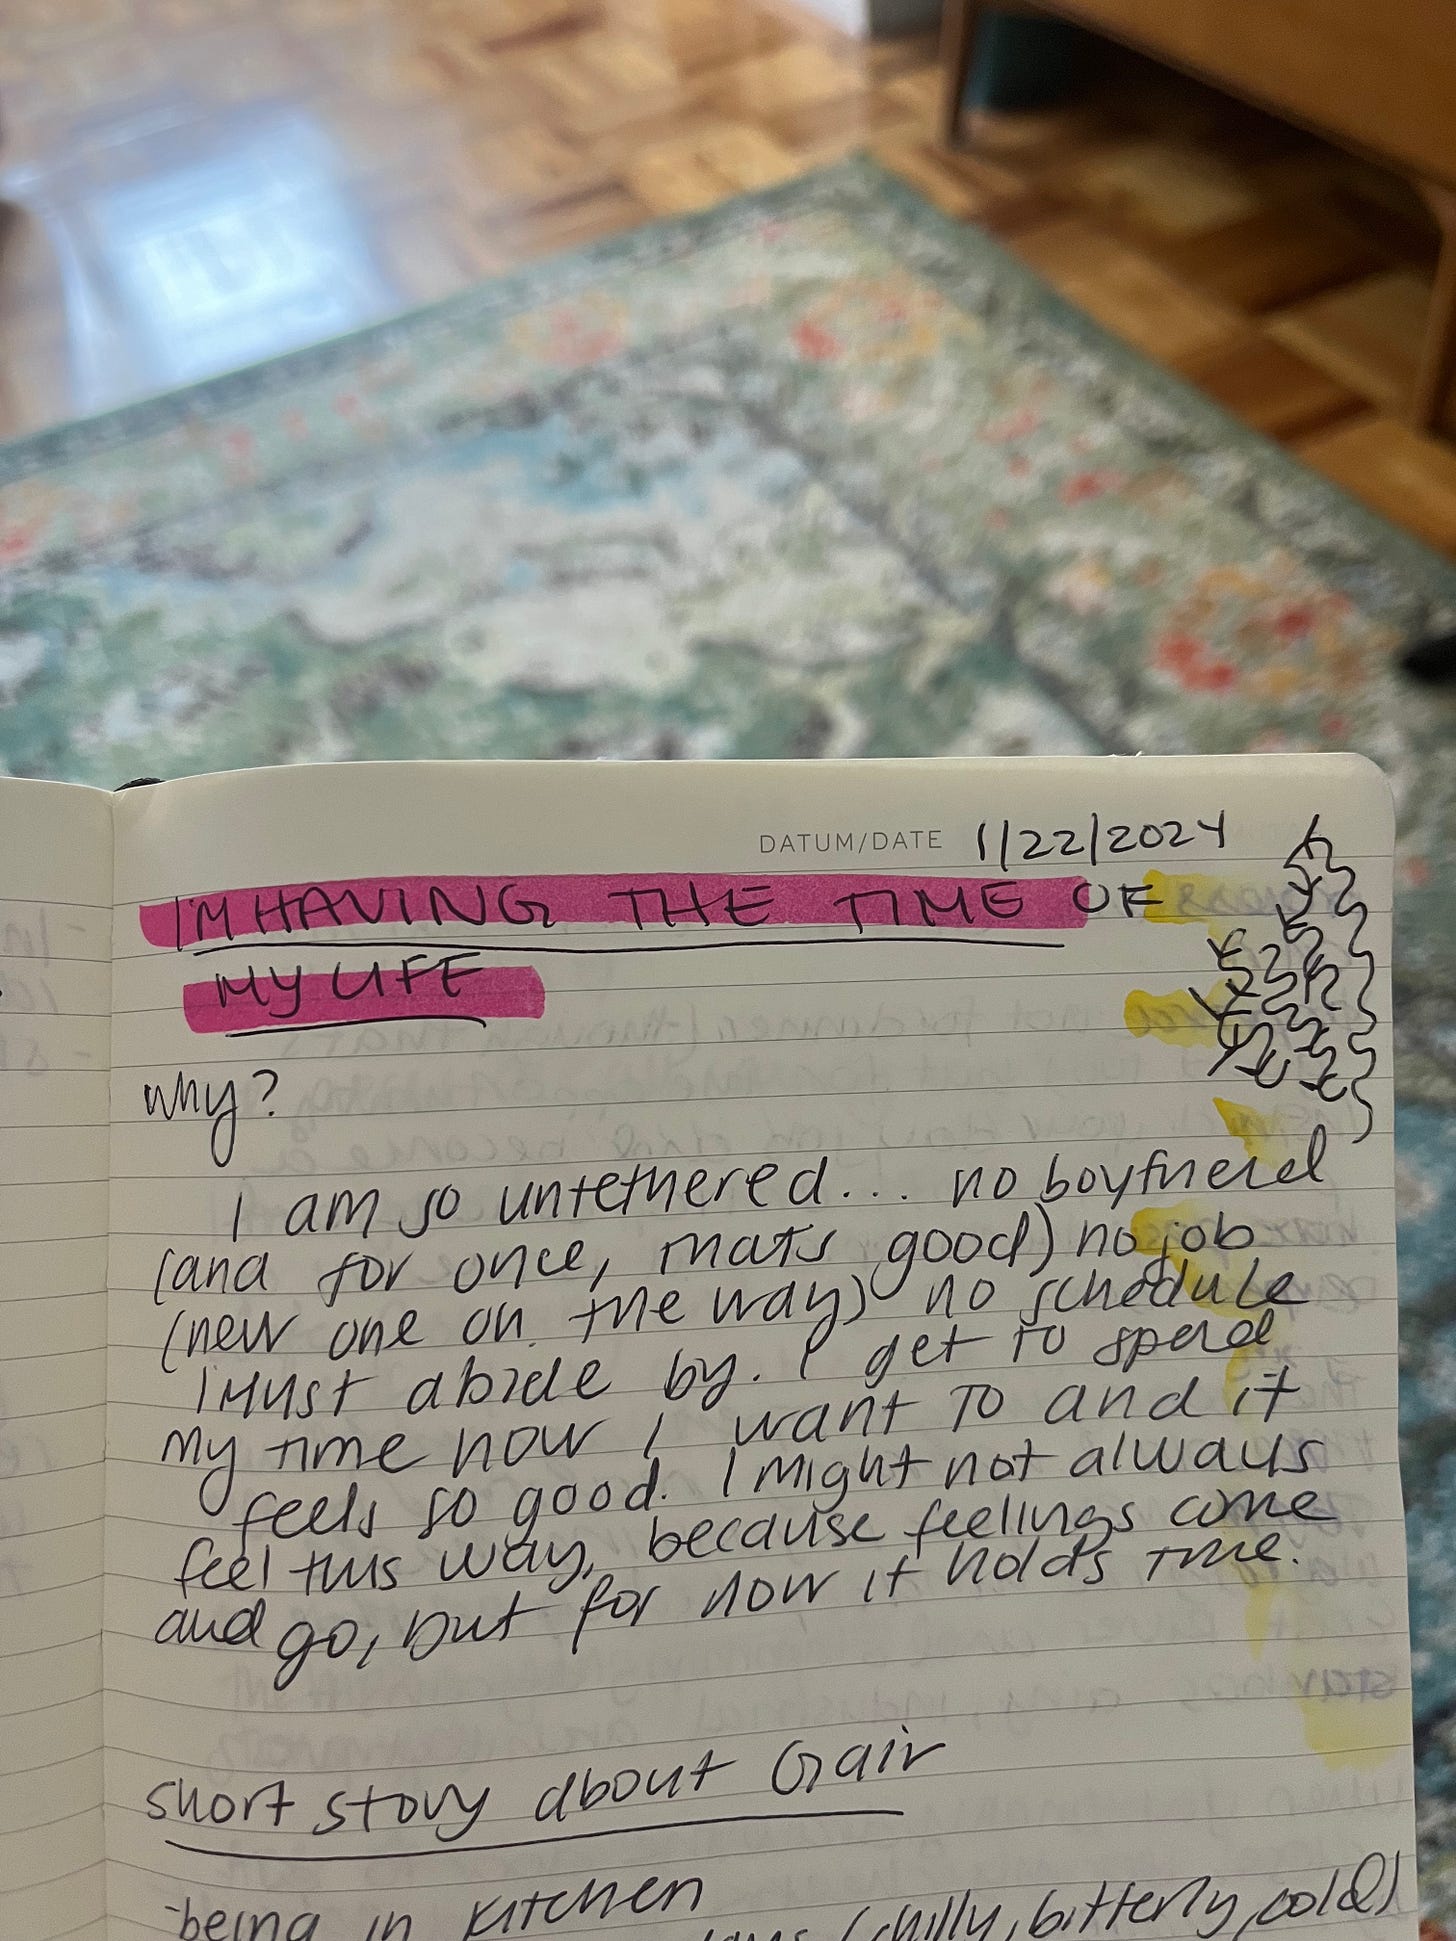 DATUM/DATE 1/22/2024
I'M HAVING THE TIME OF
MY LIFE
why?
I am so untethered... no boyfriend
(and for once, thats good) no job
(new one on the way) no schedule
I must abide by. I get to spend
my time how I want to and it
feels so good. I might not always
feel this way, because feelings come
and go, but for now it holds true.
short story about Gair
-being in kitchen
(chilly, bitterly, cold)